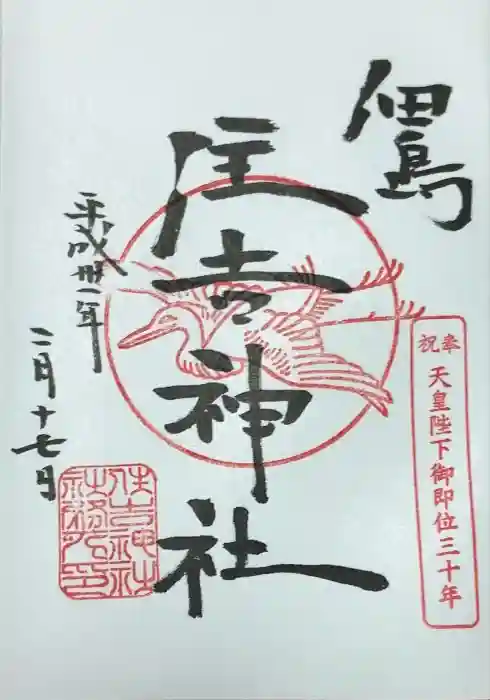 佃島
奉祝
天皇陛下御即位三十年
住吉神社
平成卅一年
二月十七日
住吉神社
社務所印